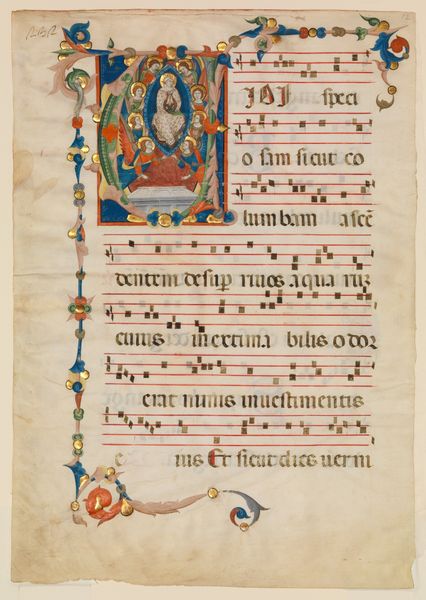 IDI speci
o sam sicut co
lumbam ascē
dentem desup rivos aquarūz
cuius inextima bilis odor
erat nimis in vestimentis
eius Et sicut dies verni